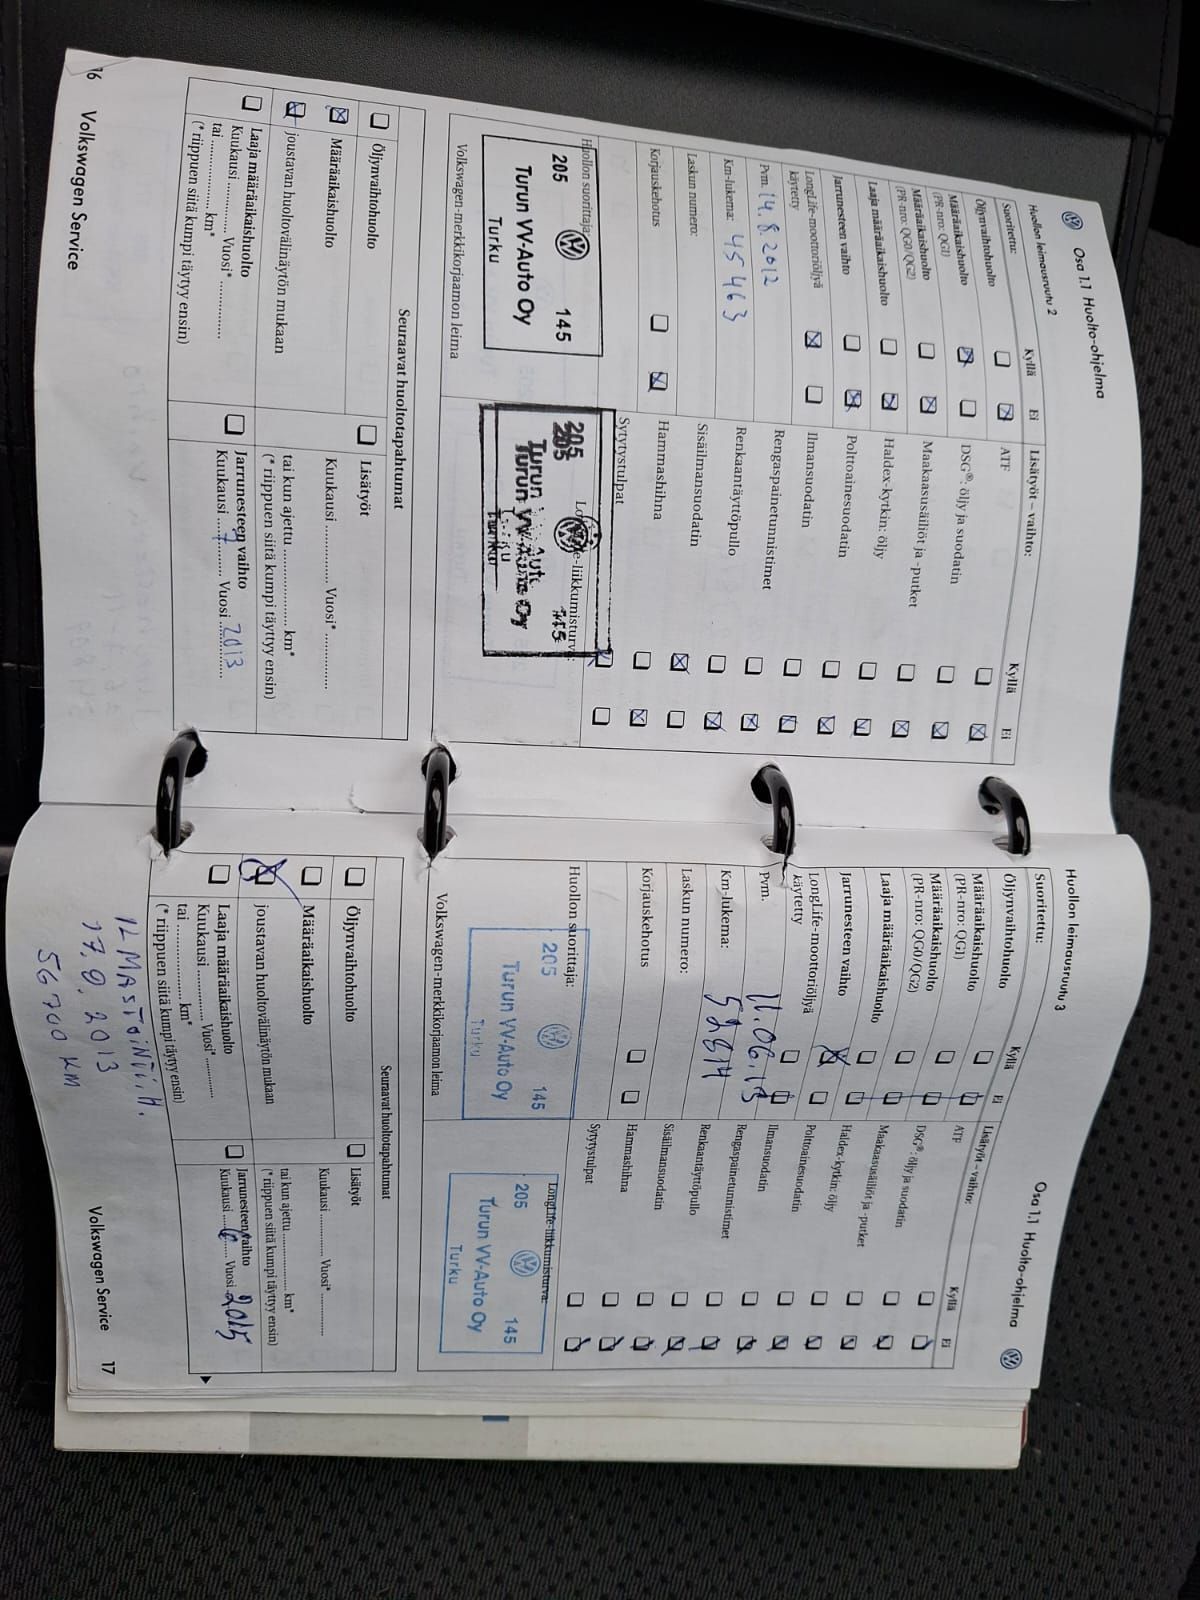 Osa 1.1 Huolto-ohjelma
Huollon leimausruutu 2
Suoritettu:
Kyllä
Ei
Öljynvaihtohuolto
Määräaikaishuolto
(PR-nro: QG1)
Määräaikaishuolto
(PR-nro: QG0/QG2)
Laaja määräaikaishuolto
Jarrunesteen vaihto
LongLife-moottoriöljyä
käytetty
Pvm. 14.8.2012
Km-lukema: 45463
Laskun numero:
Korjauskehotus
Huollon suorittaja:
205 145
Turun VV-Auto Oy
Turku
Volkswagen-merkkikorjaamon leima
Lisätyöt – vaihto:
Kyllä
Ei
ATF
DSG®: öljy ja suodatin
Maakaasusäiliöt ja -putket
Haldex-kytkin: öljy
Polttoainesuodatin
Ilmansuodatin
Rengaspainetunnistimet
Renkaantäyttöpullo
Sisäilmansuodatin
Hammashihna
Sytytystulpat
205 145
Turun VV-Auto Oy
Turku
Seuraavat huoltotapahtumat
Öljynvaihtohuolto
Määräaikaishuolto
joustavan huoltovälinäytön mukaan
Laaja määräaikaishuolto
Kuukausi ............ Vuosi* ............
tai .................... km*
(* riippuen siitä kumpi täytyy ensin)
Lisätyöt
Kuukausi ............ Vuosi* ............
tai kun ajettu .................... km*
(* riippuen siitä kumpi täytyy ensin)
Jarrunesteen vaihto
Kuukausi ....7.... Vuosi 2013
16 Volkswagen Service
Osa 1.1 Huolto-ohjelma
Huollon leimausruutu 3
Suoritettu:
Kyllä
Ei
Öljynvaihtohuolto
Määräaikaishuolto
(PR-nro: QG1)
Määräaikaishuolto
(PR-nro: QG0/QG2)
Laaja määräaikaishuolto
Jarrunesteen vaihto
LongLife-moottoriöljyä
käytetty
Pvm. 11.06.13
Km-lukema: 52814
Laskun numero:
Korjauskehotus
Huollon suorittaja:
205 145
Turun VV-Auto Oy
Turku
Volkswagen-merkkikorjaamon leima
Lisätyöt – vaihto:
Kyllä
Ei
ATF
DSG®: öljy ja suodatin
Maakaasusäiliöt ja -putket
Haldex-kytkin: öljy
Polttoainesuodatin
Ilmansuodatin
Rengaspainetunnistimet
Renkaantäyttöpullo
Sisäilmansuodatin
Hammashihna
Sytytystulpat
LongLife-liikkumisturva:
205 145
Turun VV-Auto Oy
Turku
Seuraavat huoltotapahtumat
Öljynvaihtohuolto
Määräaikaishuolto
joustavan huoltovälinäytön mukaan
Laaja määräaikaishuolto
Kuukausi ............ Vuosi* ............
tai .................... km*
(* riippuen siitä kumpi täytyy ensin)
Lisätyöt
Kuukausi ............ Vuosi* ............
tai kun ajettu .................... km*
(* riippuen siitä kumpi täytyy ensin)
Jarrunesteen vaihto
Kuukausi ....6.... Vuosi 2015
56700 KM
Volkswagen Service 17